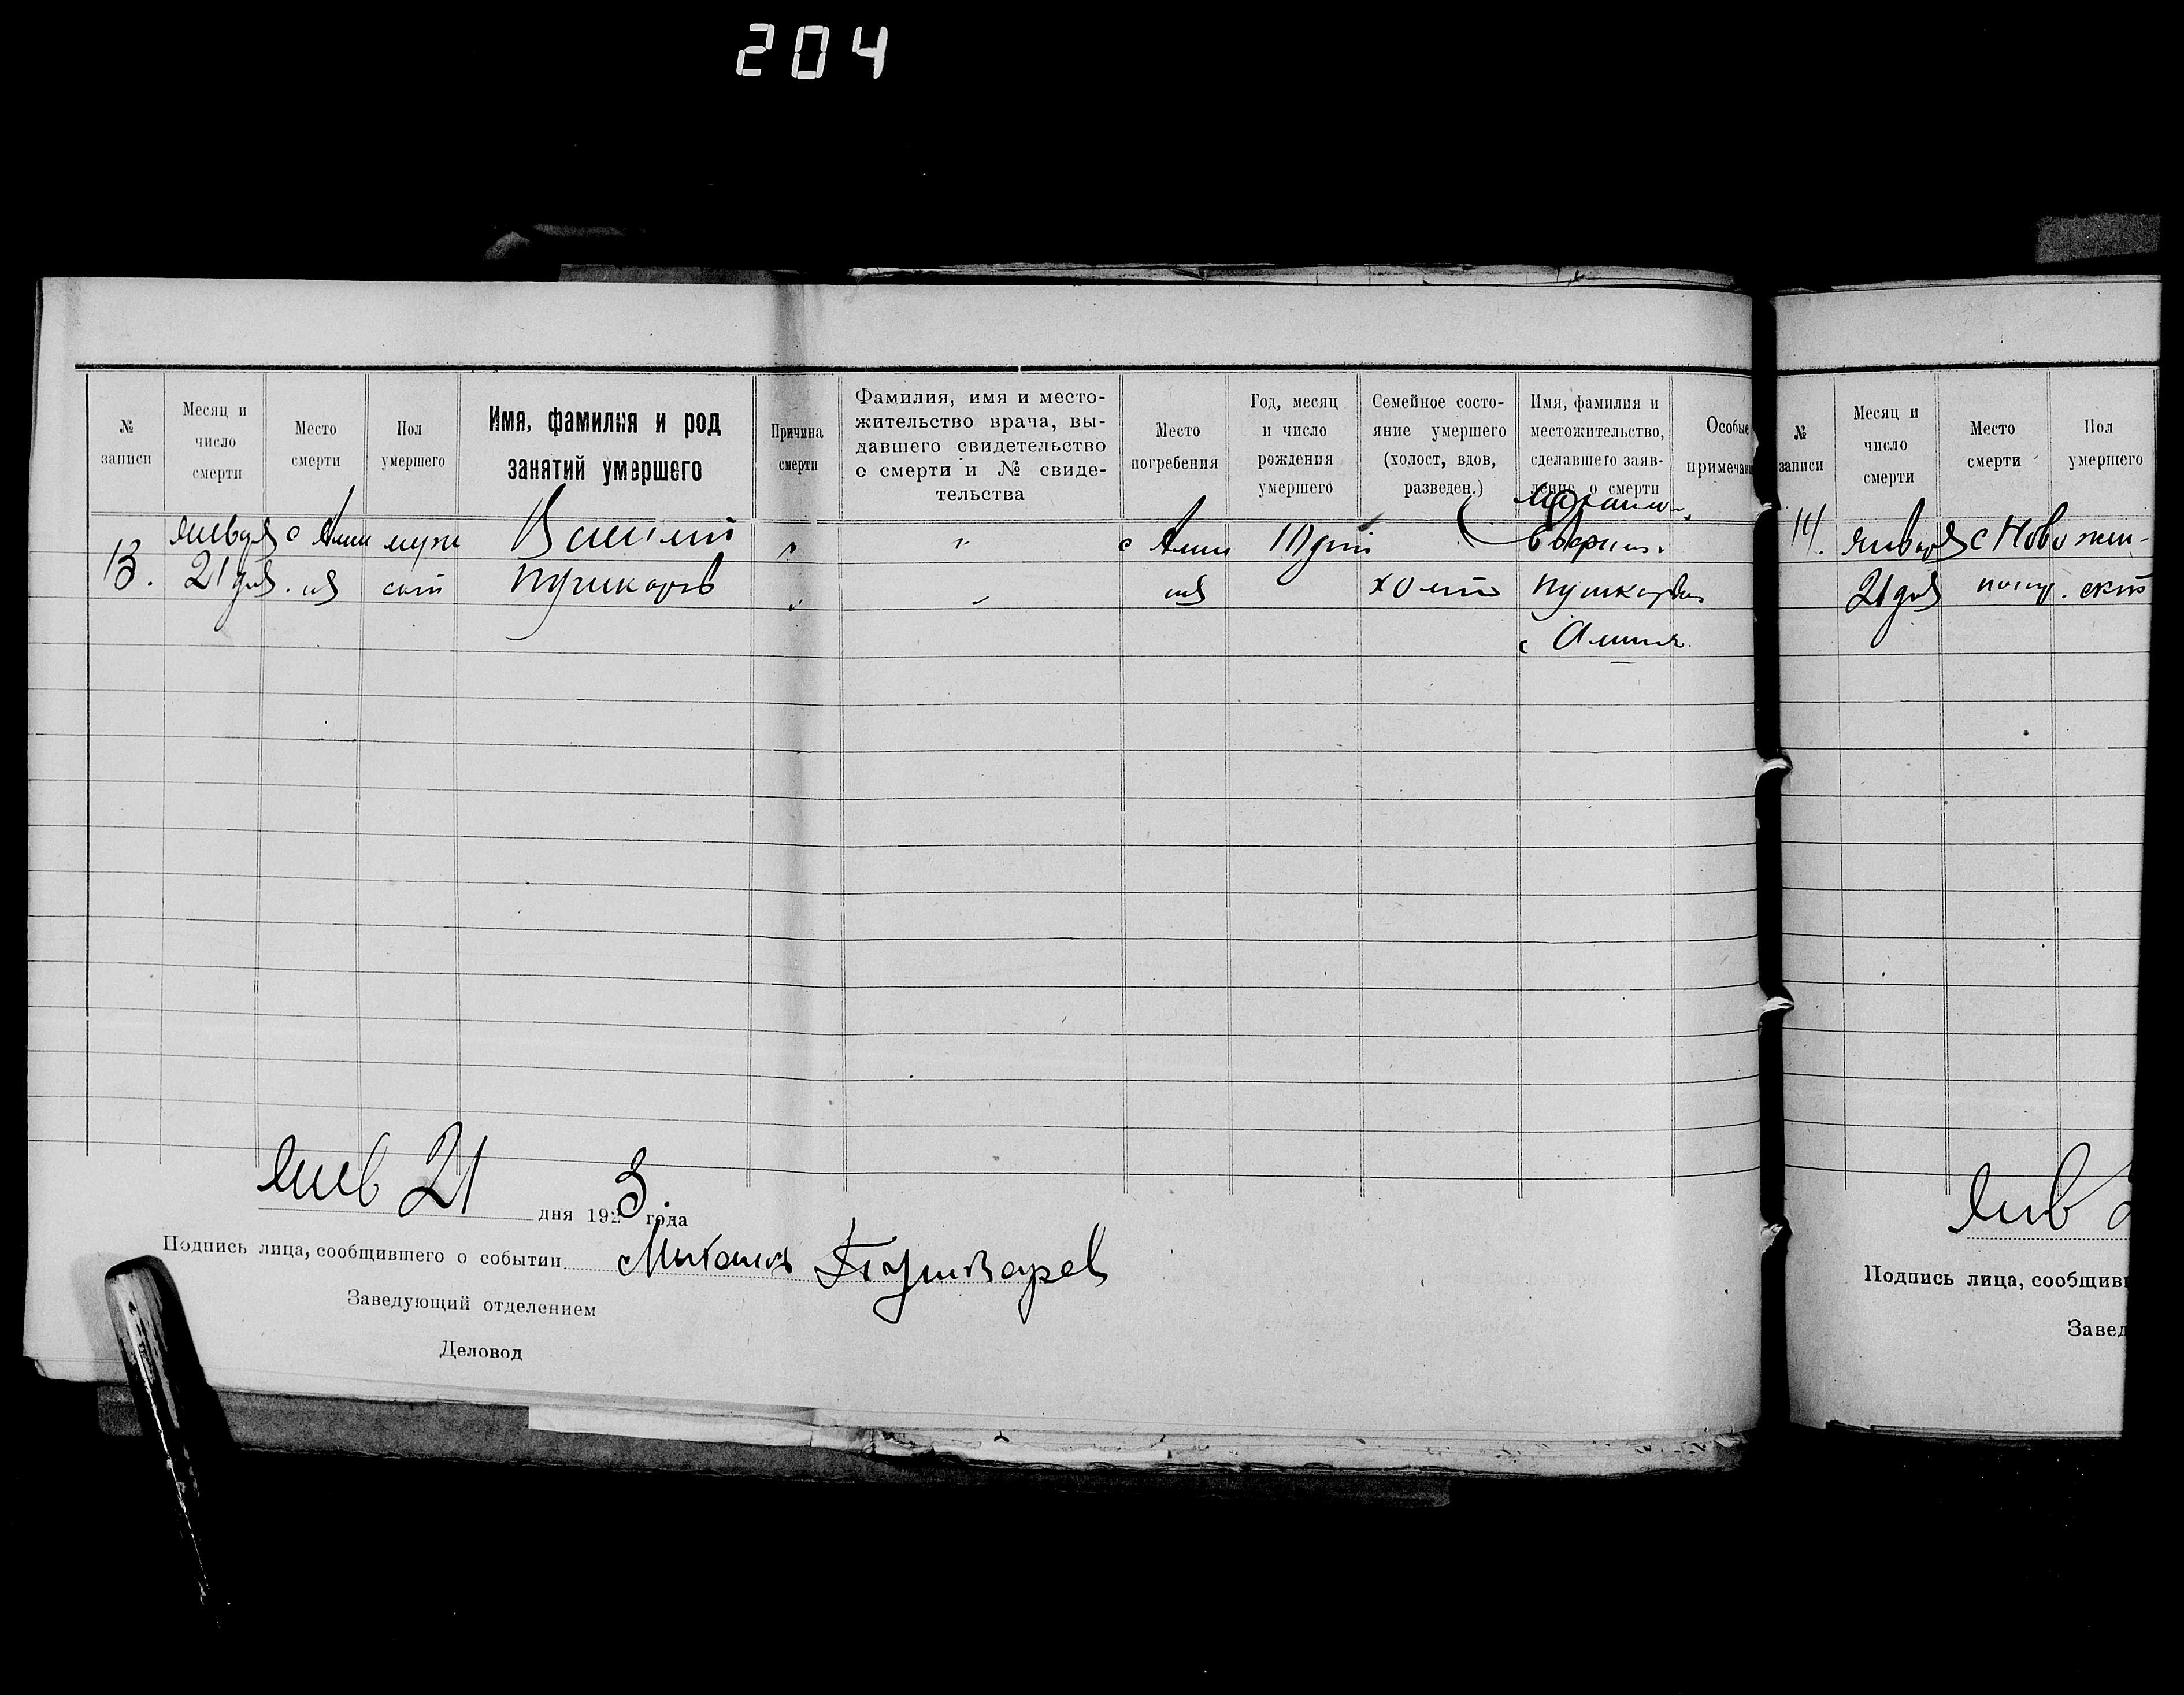 204
№ записи
Месяц и число смерти
Место смерти
Пол умершего
Имя, фамилия и род занятий умершего
Причина смерти
Фамилия, имя и место-
жительство врача, вы-
давшего свидетельство
о смерти и № свиде-
тельства
Место погребения
Год, месяц и число рождения умершего
Семейное состо-
яние умершего
(холост, вдов,
разведен.)
Имя, фамилия и
местожительство,
сделавшего заяв-
ление о смерти
Особые
примечан
13.
января
21 дня.
муж
ской
Василий
Пушкарев
"
"
"
"
холост
Пушкарев
14.
января
21 дня
с Ново
ской
янв 21 дня 1923 года
Подпись лица, сообщившего о событии Пушкарев
Заведующий отделением
Деловод
№ записи
Месяц и число смерти
Место смерти
Пол умершего
янв 2
Подпись лица, сообщивш
Завед